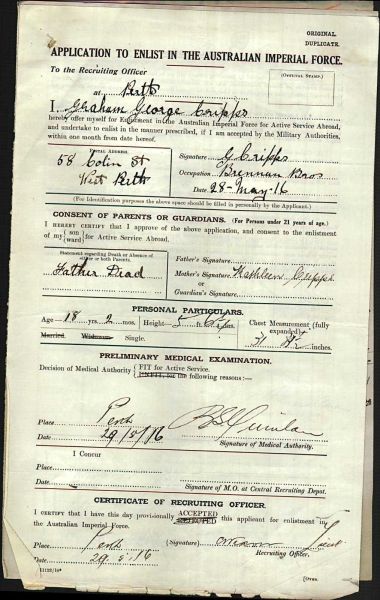 ORIGINAL
DUPLICATE.
APPLICATION TO ENLIST IN THE AUSTRALIAN IMPERIAL FORCE.
To the Recruiting Officer
(OFFICIAL STAMP.)
at Perth
I, Graham George Cripps
hereby offer myself for Enlistment in the Australian Imperial Force for Active Service Abroad,
and undertake to enlist in the manner prescribed, if I am accepted by the Military Authorities,
within one month from date hereof.
POSTAL ADDRESS.
58 Colin St
West Perth
Signature G Cripps
Occupation Brennan Bros
Date 28-May-16
(For Identification purposes the above space should be filled in personally by the Applicant.)
CONSENT OF PARENTS OR GUARDIANS. (For Persons under 21 years of age.)
I HEREBY CERTIFY that I approve of the above application, and consent to the enlistment
of my (son) (ward) for Active Service Abroad.
Statement regarding Death or Absence of either or both Parents.
Father Dead
Father's Signature
Mother's Signature Kathleen Cripps
or
Guardian's Signature
PERSONAL PARTICULARS.
Age 18 yrs. 2 mos. Height 5 ft. ins.
Chest Measurement (fully expanded)
inches.
Married. Widower. Single.
PRELIMINARY MEDICAL EXAMINATION.
Decision of Medical Authority FIT for Active Service.
UNFIT, for the following reasons:—
Place Perth
Date 29/5/16
Quinlan
Signature of Medical Authority.
I Concur
Place
Date
Signature of M.O. at Central Recruiting Depot.
CERTIFICATE OF RECRUITING OFFICER.
I CERTIFY that I have this day provisionally ACCEPTED REJECTED this applicant for enlistment in
the Australian Imperial Force.
Place Perth
(Signature) Lieut
Recruiting Officer.
Date 29.5.16
[OVER.